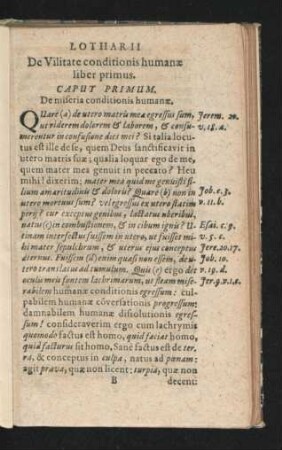 LOTHARII
De Vilitate conditionis humanæ
liber primus.
CAPUT PRIMUM.
De miseria conditionis humanæ.
QUare (a) de utero matris mea egressus sum, Jerem. 20.
ut viderem dolorem & laborem, & consu- v. 18. a.
merentur in confusione dies mei? Si talia locu-
tus est ille de se, quem Deus sanctificavit in
utero matris suæ; qualia loquar ego de me,
quem mater mea genuit in peccato? Heu
mihi! dixerim; mater mea quid me genuisti fi-
lium amaritudinis & doloris? Quare (b) non in Job. c. 3.
utero mortuus sum? vel egressus ex utero statim v. 11. b.
perij? cur exceptus genibus, lactatus uberibus,
natus (c) in combustionem, & in cibum ignis? U- Esai. c. 9.
tinam interfectus fuissem in utero, ut fuisset mi- v. 5. c.
hi mater sepulchrum, & uterus ejus conceptus Jere. 20. 17.
æternus. Fuissem (d) enim quasi non essem, de u- Job. 10.
tero translatus ad tumulum. Quis (e) ergo dabit v. 19. d.
oculis meis fontem lachrimarum, ut fleam mise- Jer. 9. v. 1. e.
rabilem humanæ conditionis egressum: cul-
pabilem humanæ cōversationis progressum;
damnabilem humanæ dissolutionis egres-
sum? consideraverim ergo cum lachrymis
quomodo factus est homo, quid faciat homo,
quid facturus sit homo. Sanè factus est de ter-
ra, & conceptus in culpa, natus ad pœnam:
agit prava, quæ non licent: turpia, quæ non
B decent: